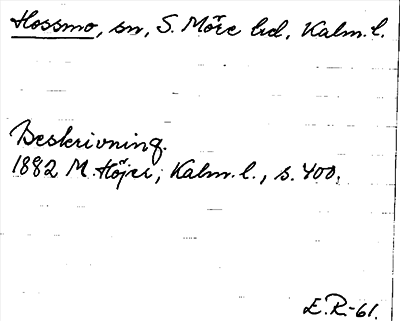 Hossmo, sn, S. Möre hd, Kalm. l.
Beskrivning.
1882 M. Höjer, Kalm. l., s. 400.
E.R.-61.